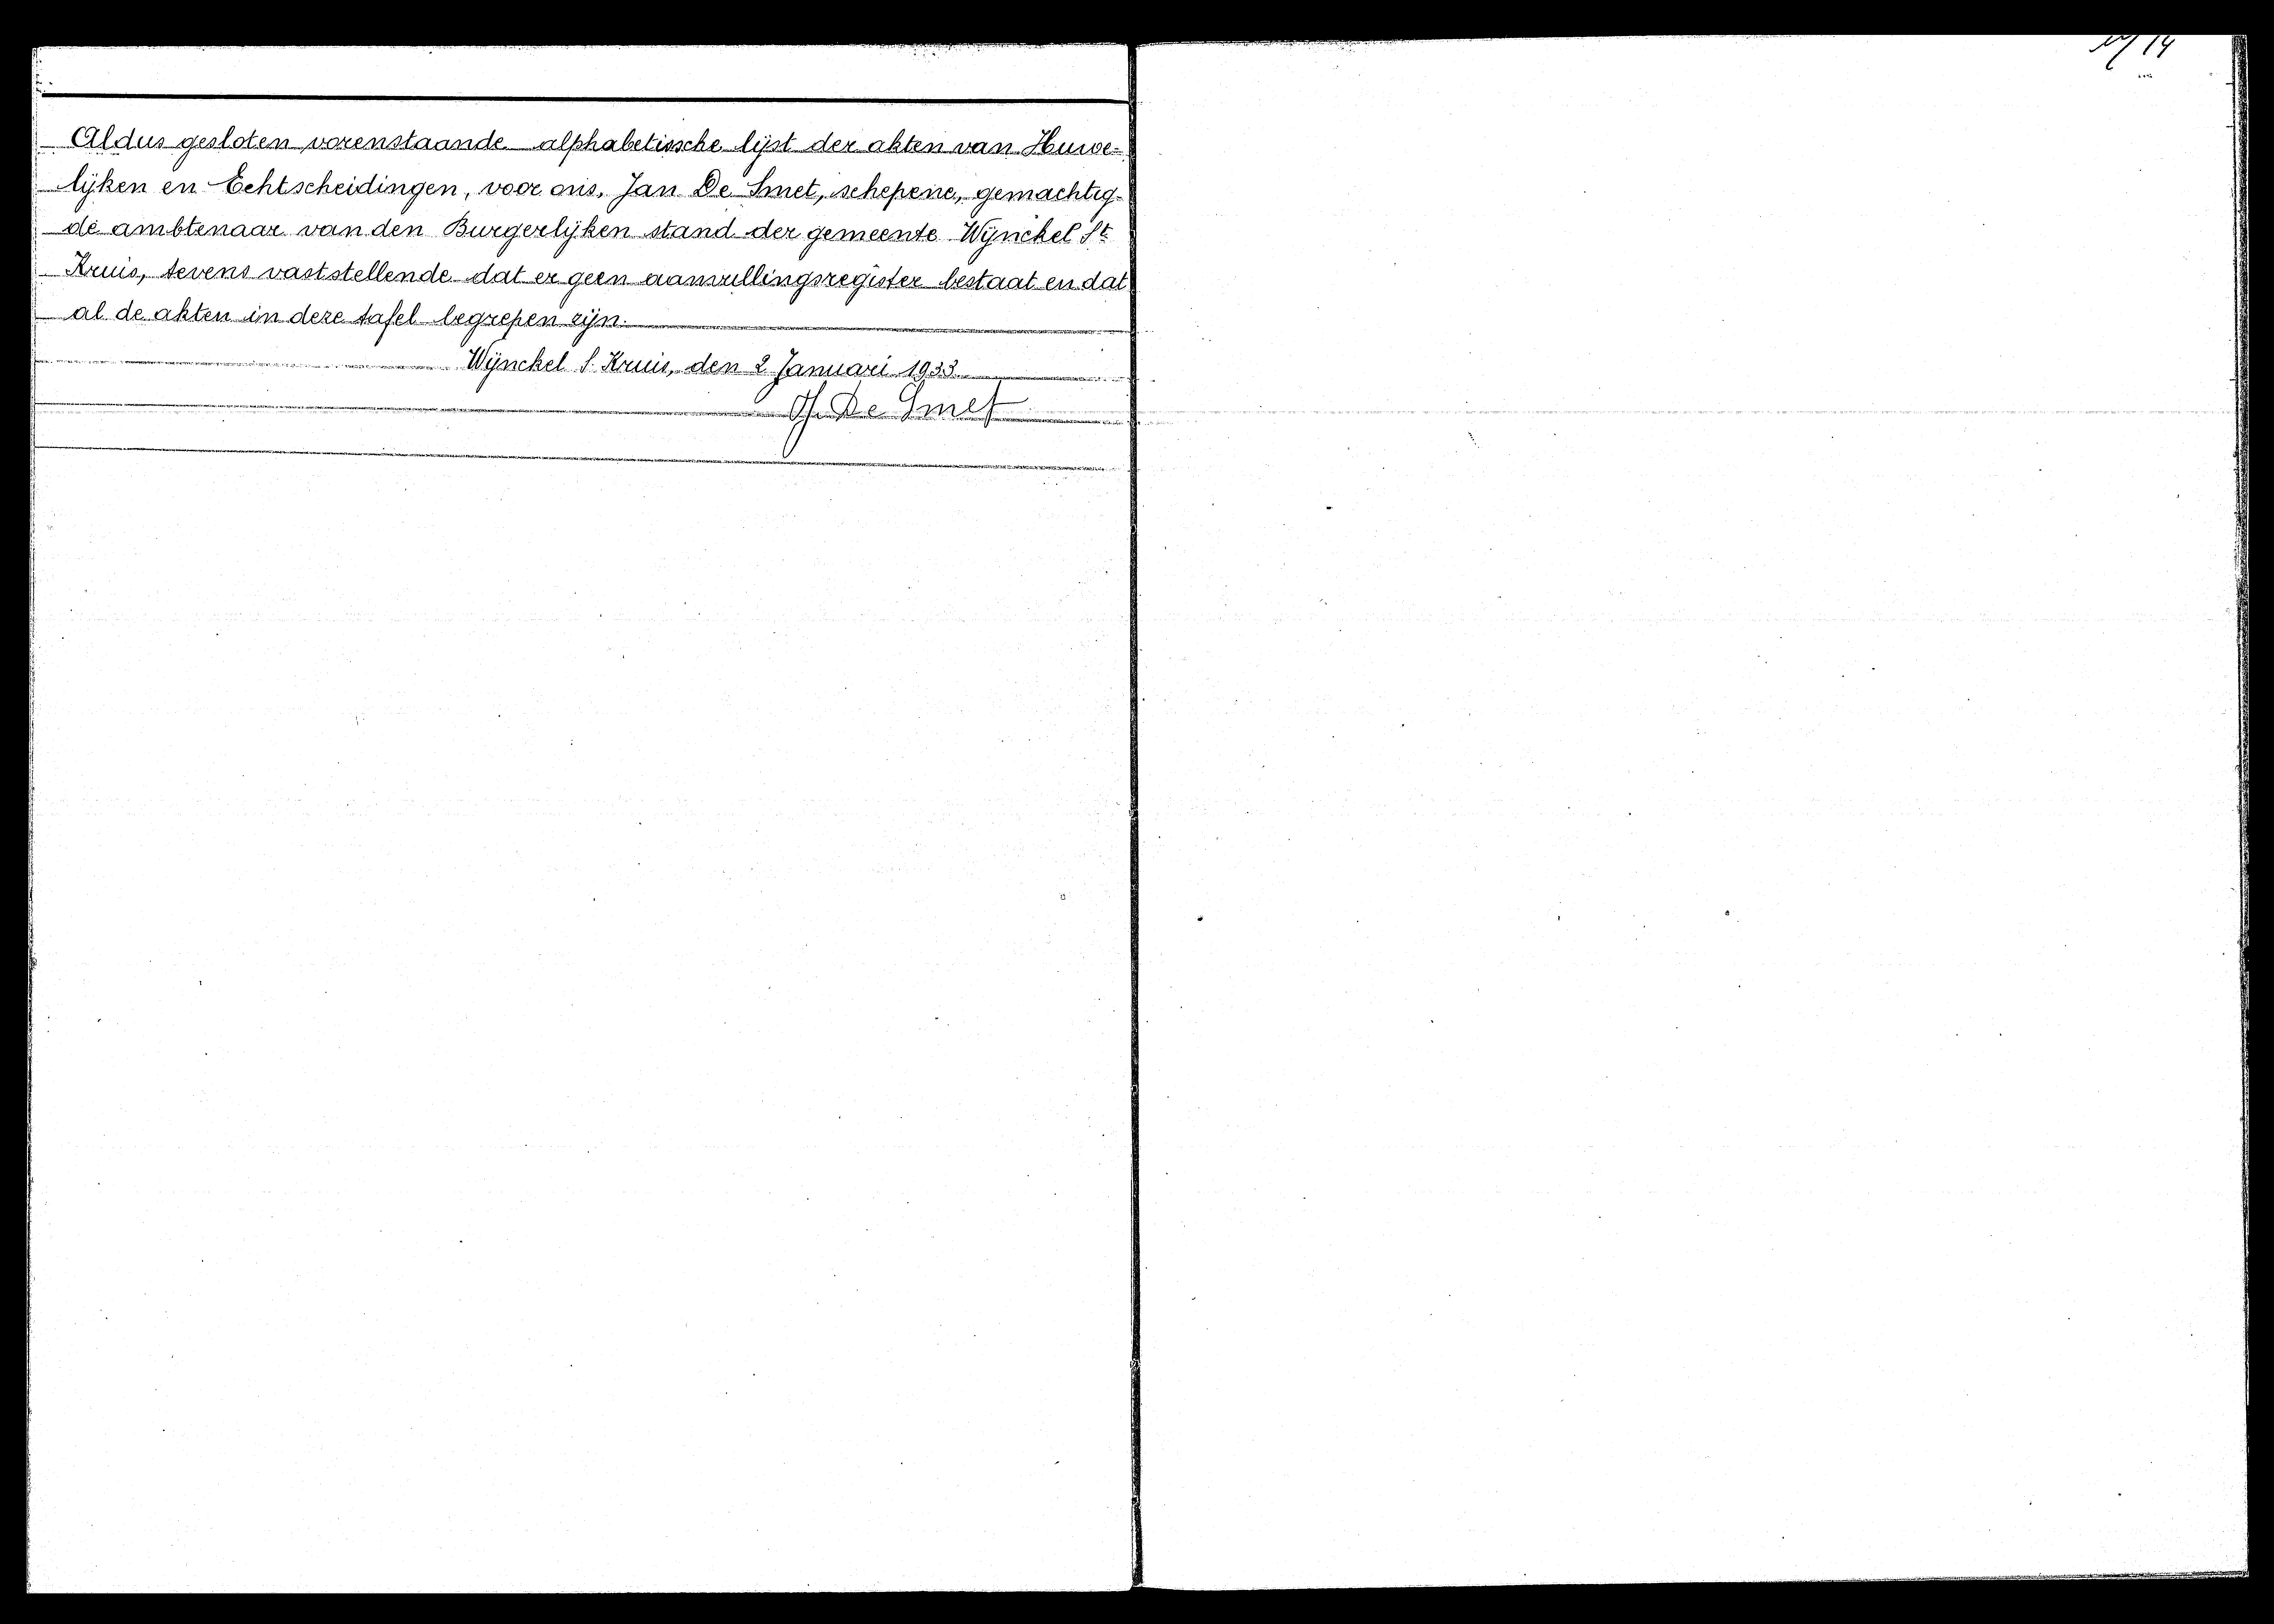 Aldus gesloten vorenstaande alphabetissche lijst der akten van Huwe-
lijken en Echtscheidingen, voor ons, Jan De Smet, schepene, gemachtig-
de ambtenaar van den Burgerlijken stand der gemeente Wijnckel St
Kruis, tevens vaststellende dat er geen aanvullingsregister bestaat en dat
al de akten in deze tafel begrepen zijn.
Wijnckel S. Kruis, den 2 Januari 1933.
J. De Smet
14